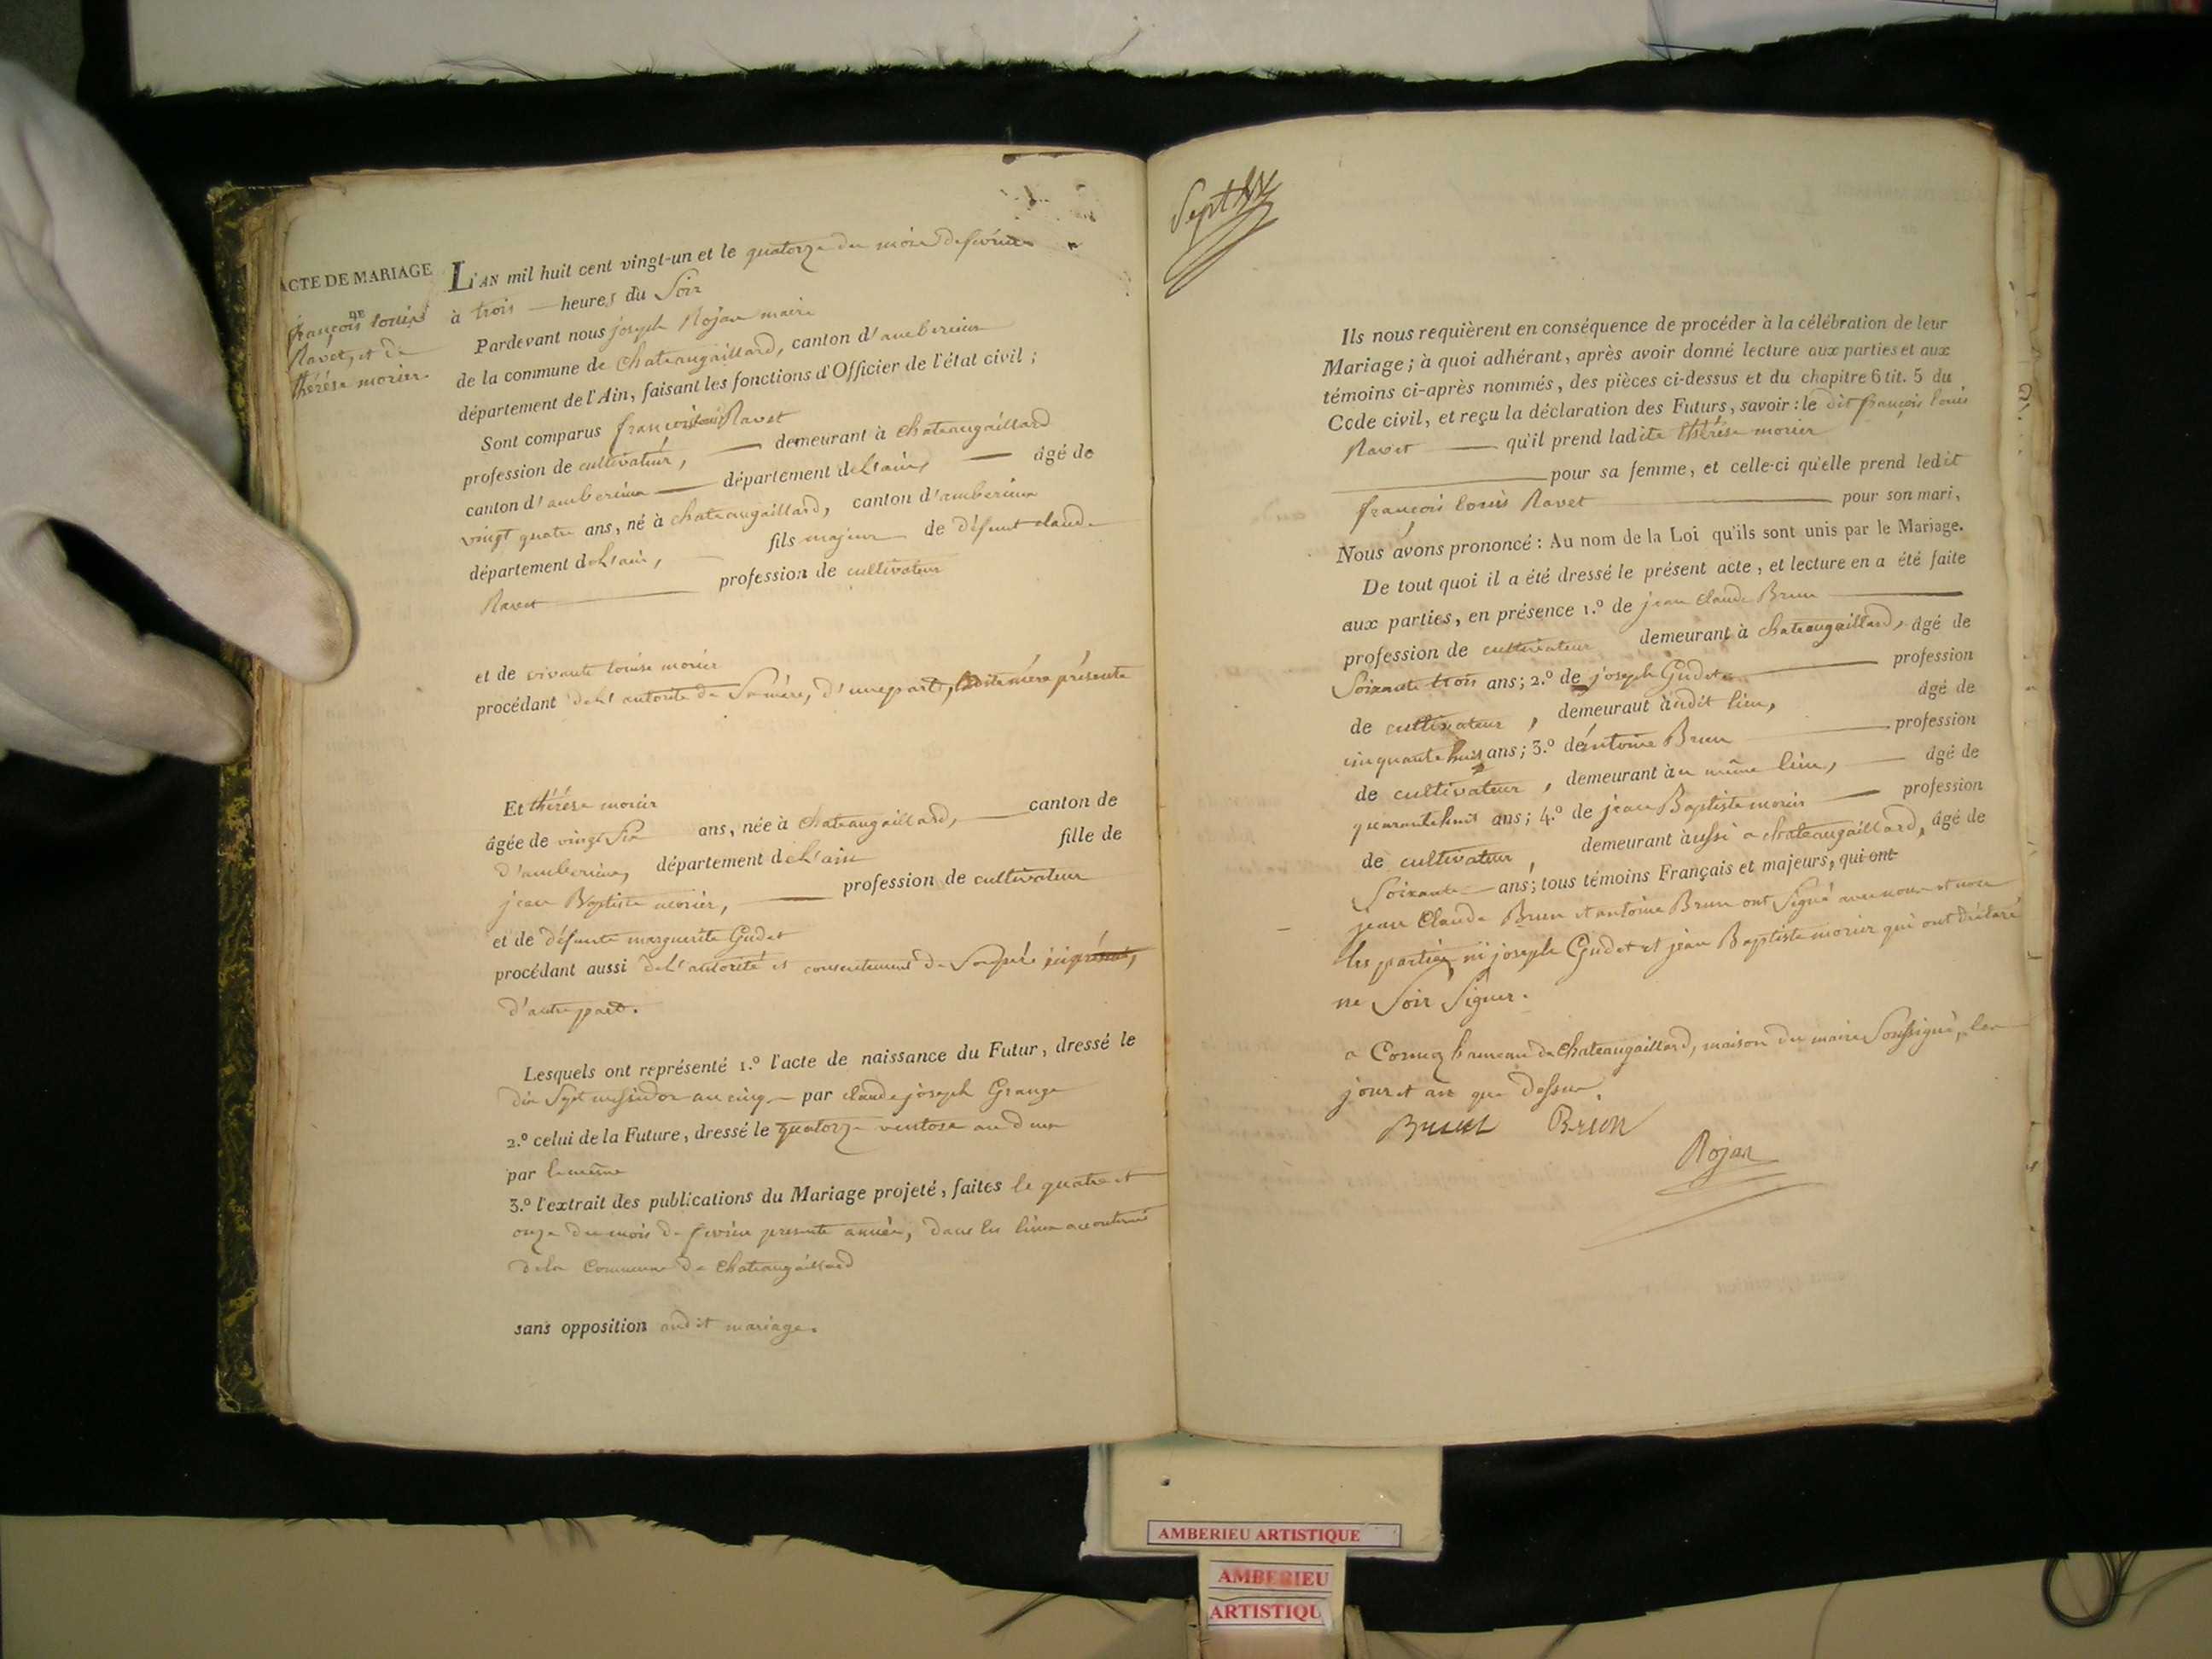 ACTE DE MARIAGE
DE
françois louis
Ravet, et de
thérèse morier.
L'AN mil huit cent vingt-un et le quatorze du mois de fevrier
à trois heures du Soir
Pardevant nous joseph Rojan maire
de la commune de chateaugaillard, canton d'amberieux
département de l'Ain, faisant les fonctions d'Officier de l'état civil ;
Sont comparus françois louis Ravet
profession de cultivateur, demeurant à chateaugaillard
canton d'amberieux département de L'ain, âgé de
vingt quatre ans, né à chateaugaillard, canton d'amberieux
département de L'ain, fils majeur de défunt claude
Ravet profession de cultivateur
et de vivante louise morier
procédant de L'autorité de Sa mère, d'une part, ladite mère présente
Et thérèse morier
âgée de vingt Six ans, née à chateaugaillard, canton de
d'amberieux, département de L'ain fille de
jean Baptiste morier, profession de cultivateur
et de défunte marguerite Gudet
procédant aussi de L'autorité et consentement de Son père ici présent,
d'autre part.
Lesquels ont représenté 1.º l'acte de naissance du Futur, dressé le
dix Sept messidor an cinq par claude joseph Grange
2.º celui de la Future, dressé le quatorze ventose an deux
par le même
3.º l'extrait des publications du Mariage projeté, faites le quatre et
onze du mois de fevrier presente année, dans les lieux accoutumé
de la Commune de Chateaugaillard
sans opposition audit mariage.
Sept
Ils nous requièrent en conséquence de procéder à la célébration de leur
Mariage ; à quoi adhérant, après avoir donné lecture aux parties et aux
témoins ci-après nommés, des pièces ci-dessus et du chapitre 6 tit. 5 du
Code civil, et reçu la déclaration des Futurs, savoir : le dit françois louis
Ravet qu'il prend ladite thérèse morier
pour sa femme, et celle-ci qu'elle prend ledit
françois louis Ravet pour son mari,
Nous avons prononcé : Au nom de la Loi qu'ils sont unis par le Mariage.
De tout quoi il a été dressé le présent acte, et lecture en a été faite
aux parties, en présence 1.º de jean claude Brun
profession de cultivateur demeurant à chateaugaillard, âgé de
Soixante trois ans ; 2.º de joseph Gudet profession
de cultivateur, demeuraut audit lieu, âgé de
cinquante huit ans ; 3.º de antoine Brun profession
de cultivateur, demeurant au même lieu, âgé de
quarante huit ans ; 4.º de jean Baptiste morier profession
de cultivateur, demeurant aussi a chateaugaillard, âgé de
Soixante ans ; tous témoins Français et majeurs, qui ont
jean Claude Brun et antoine Brun ont Signé avec nous et non
les parties ni joseph Gudet et jean Baptiste morier qui ont déclaré
ne Soir Signer.
a Cormoz hameau de chateaugaillard, maison du maire Soussigné, les
jour et an que dessus.
Brun Brun
Rojan
AMBERIEU ARTISTIQUE
AMBERIEU
ARTISTIQU